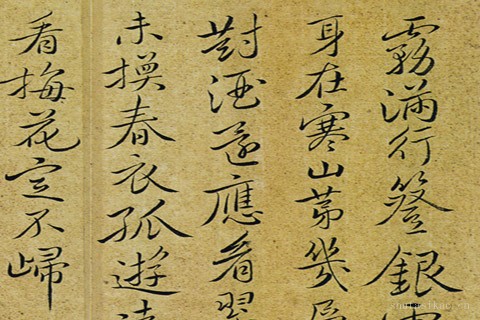 霧滿行簦銀
身在寒山第幾
對酒還應看翠
未換春衣孤遊
看梅花定不歸